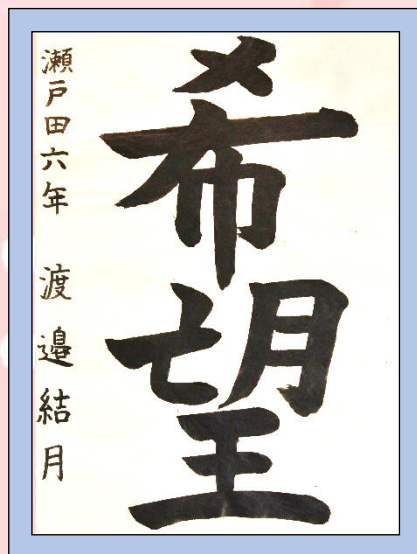 希望
瀬戸田六年 渡邉結月